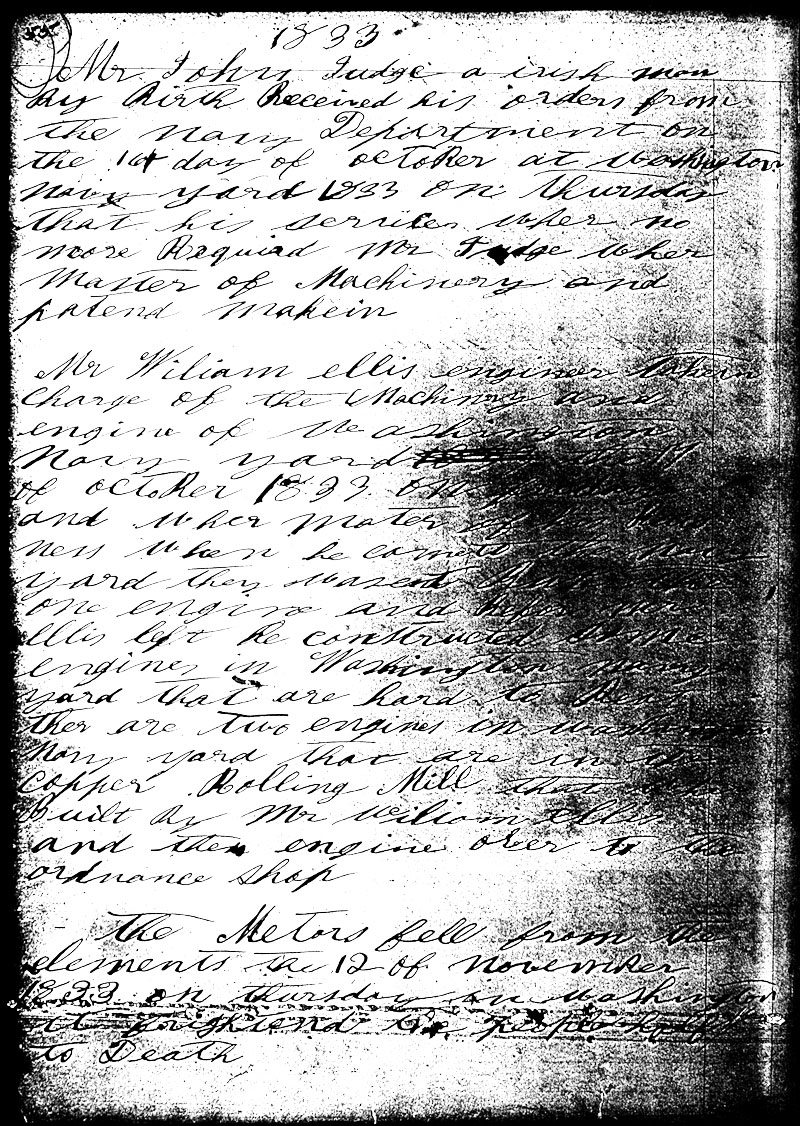 1833
Mr John Judge a irish man
By Birth Received his orders from
the Navy Department on
the 14 day of octoBer at washington
Navy yard 1833 on thursday
that his servises wher no
more Requiad Mr Judge wher
Master of Machinery and
patend Makein
Mr Wiliam ellis enginer
Charge of the Machinery and
engine of Washington
Navy yard
of octoBer 1833 on
and wher mater of his
ness when he came to the navy
yard they was But
one engine and Before mr
Ellis left he constructed some
engines in Washington navy
yard that are hard to Beat
ther are two engines in washington
Navy yard that are in the
Copper Rolling Mill that
Built By Mr Wiliam Ellis
and then engine over to the
ordnance shop
the Metors fell from the
elements the 12 of novemBer
1833 on thursday in washington
it frightend the people half
to Death